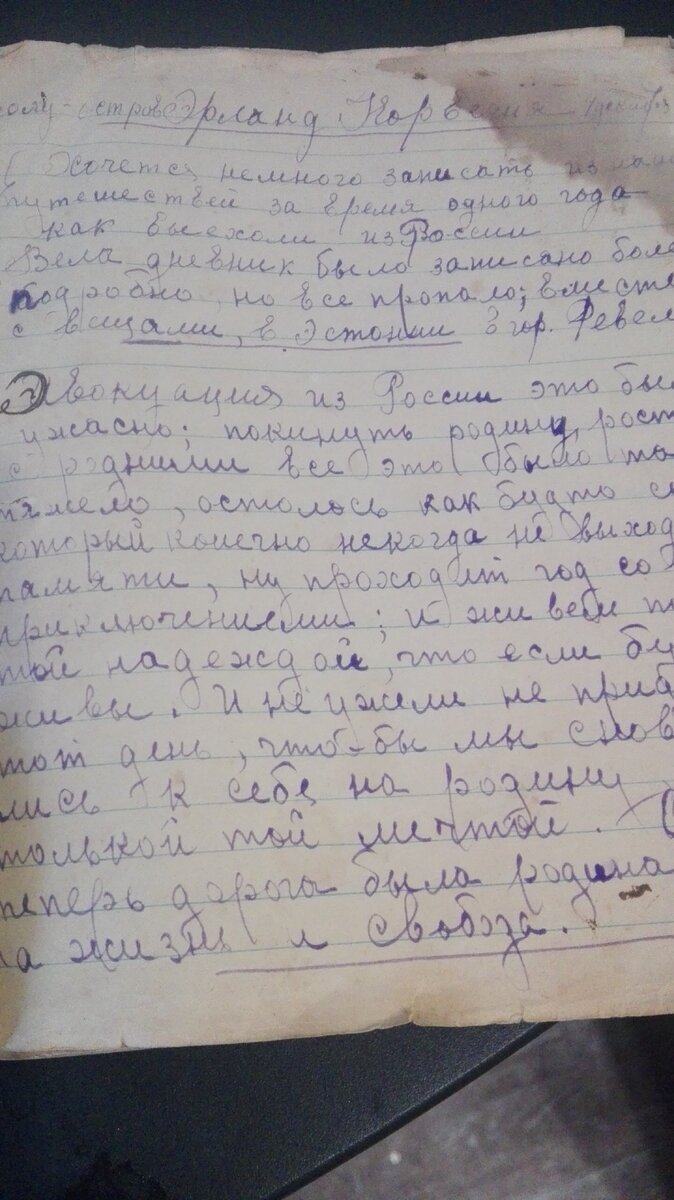 остров Эрланд Норвегия 1 декабря
Хочется немного записать из наш
путешествей за время одного года
как выехоли из России
Вела дневник было записано боле
подробно, но все пропало; вместе
с вещами, в Эстонии в гор. Ревел
Эвокуация из России это был
ужасно; покинуть родину, рост
с родними все это было то
тяжело, осталось как будто с
который конечно некогда не выход
памяти, ну проходит год со
приключениеми; и живеш т
той надеждой, что если бу
живы. И не ужели не приб
тот день, что-бы мы снов
лись к себе на родину
толькой той мечтой.
теперь дорога была родина
на жизнь и свобода.